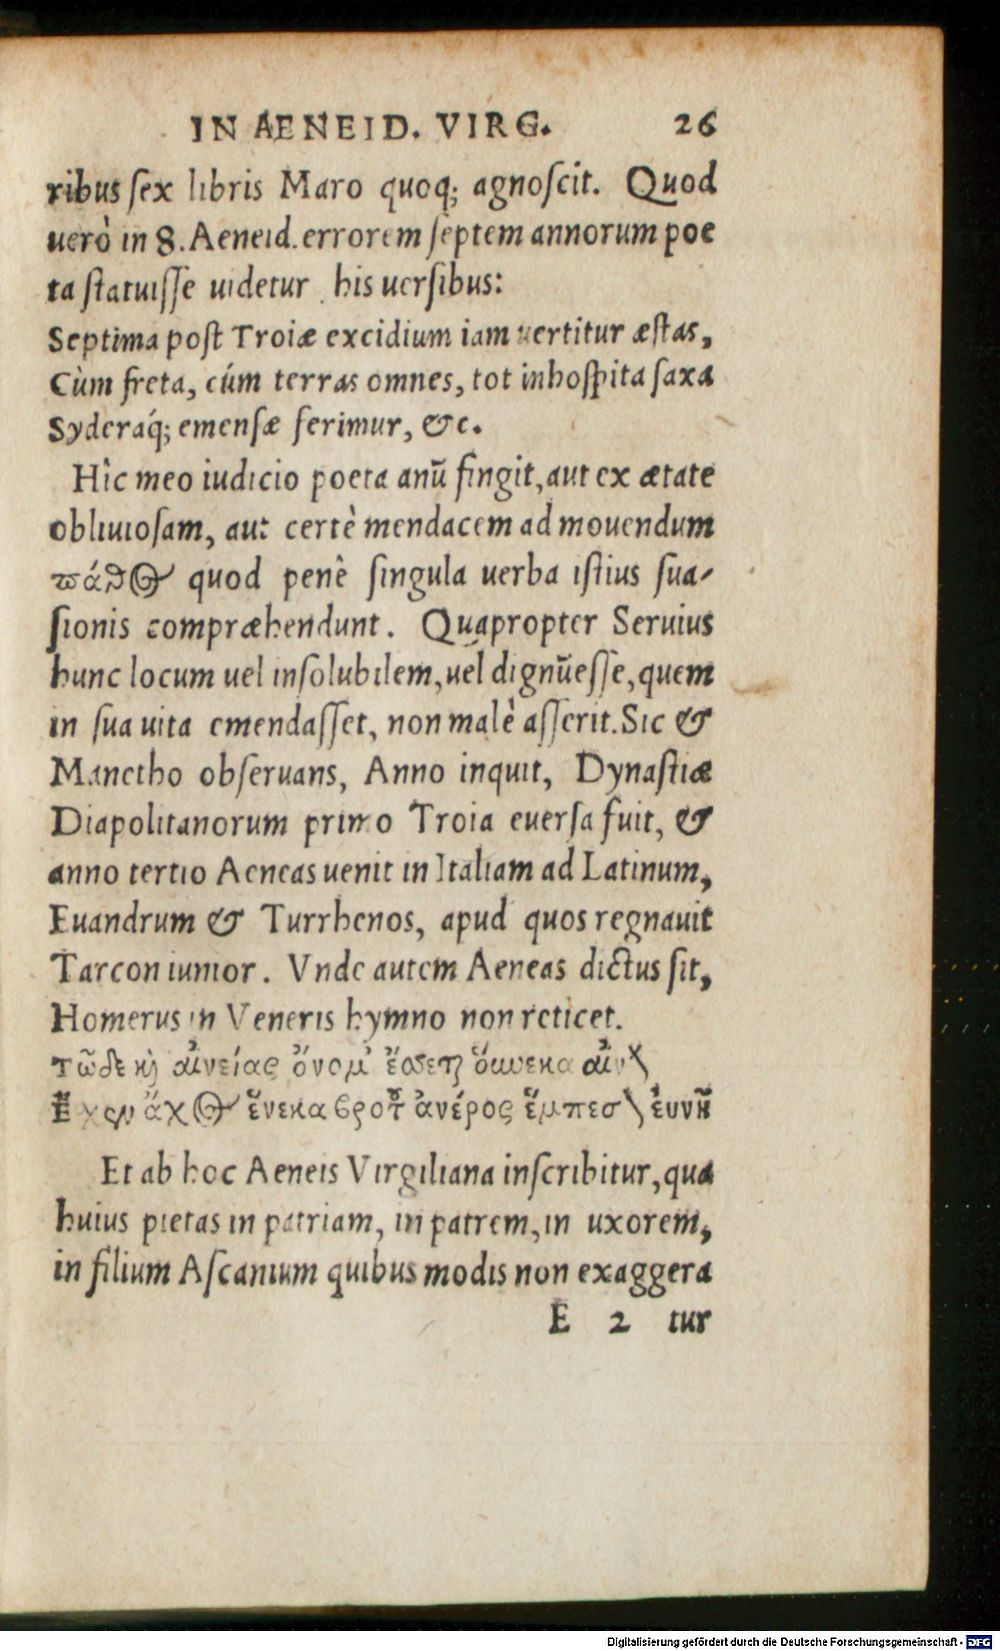 IN AENEID. VIRG. 26
ribus sex libris Maro quoq; agnoscit. Quod
uerò in 8. Aeneid. errorem septem annorum poe
ta statuisse uidetur his uersibus:
Septima post Troiæ excidium iam uertitur æstas,
Cùm freta, cúm terras omnes, tot inhospita saxa
Syderaq́; emensæ ferimur, &c.
Hîc meo iudicio poeta anū fingit, aut ex ætate
obliuiosam, aut certè mendacem ad mouendum
πάθος quod penè singula uerba istius sua-
sionis compræhendunt. Quapropter Seruius
hunc locum uel insolubilem, uel dignū esse, quem
in sua uita emendasset, non malè asserit. Sic &
Manetho obseruans, Anno inquit, Dynastiæ
Diapolitanorum primo Troia euersa fuit, &
anno tertio Aeneas uenit in Italiam ad Latinum,
Euandrum & Turrhenos, apud quos regnauit
Tarcon iunior. Vnde autem Aeneas dictus sit,
Homerus in Veneris hymno non reticet.
τῶδε καὶ αἰνείας ὄνομ' ἔσσεται οὕνεκα αἰν
ἄχος ἕνεκα βροτοῦ ἀνέρος ἔμπεσον εὐνῆ
Et ab hoc Aeneis Virgiliana inscribitur, qua
huius pietas in patriam, in patrem, in uxorem,
in filium Ascanium quibus modis non exaggera
E 2 tur
Digitalisierung gefördert durch die Deutsche Forschungsgemeinschaft - DFG